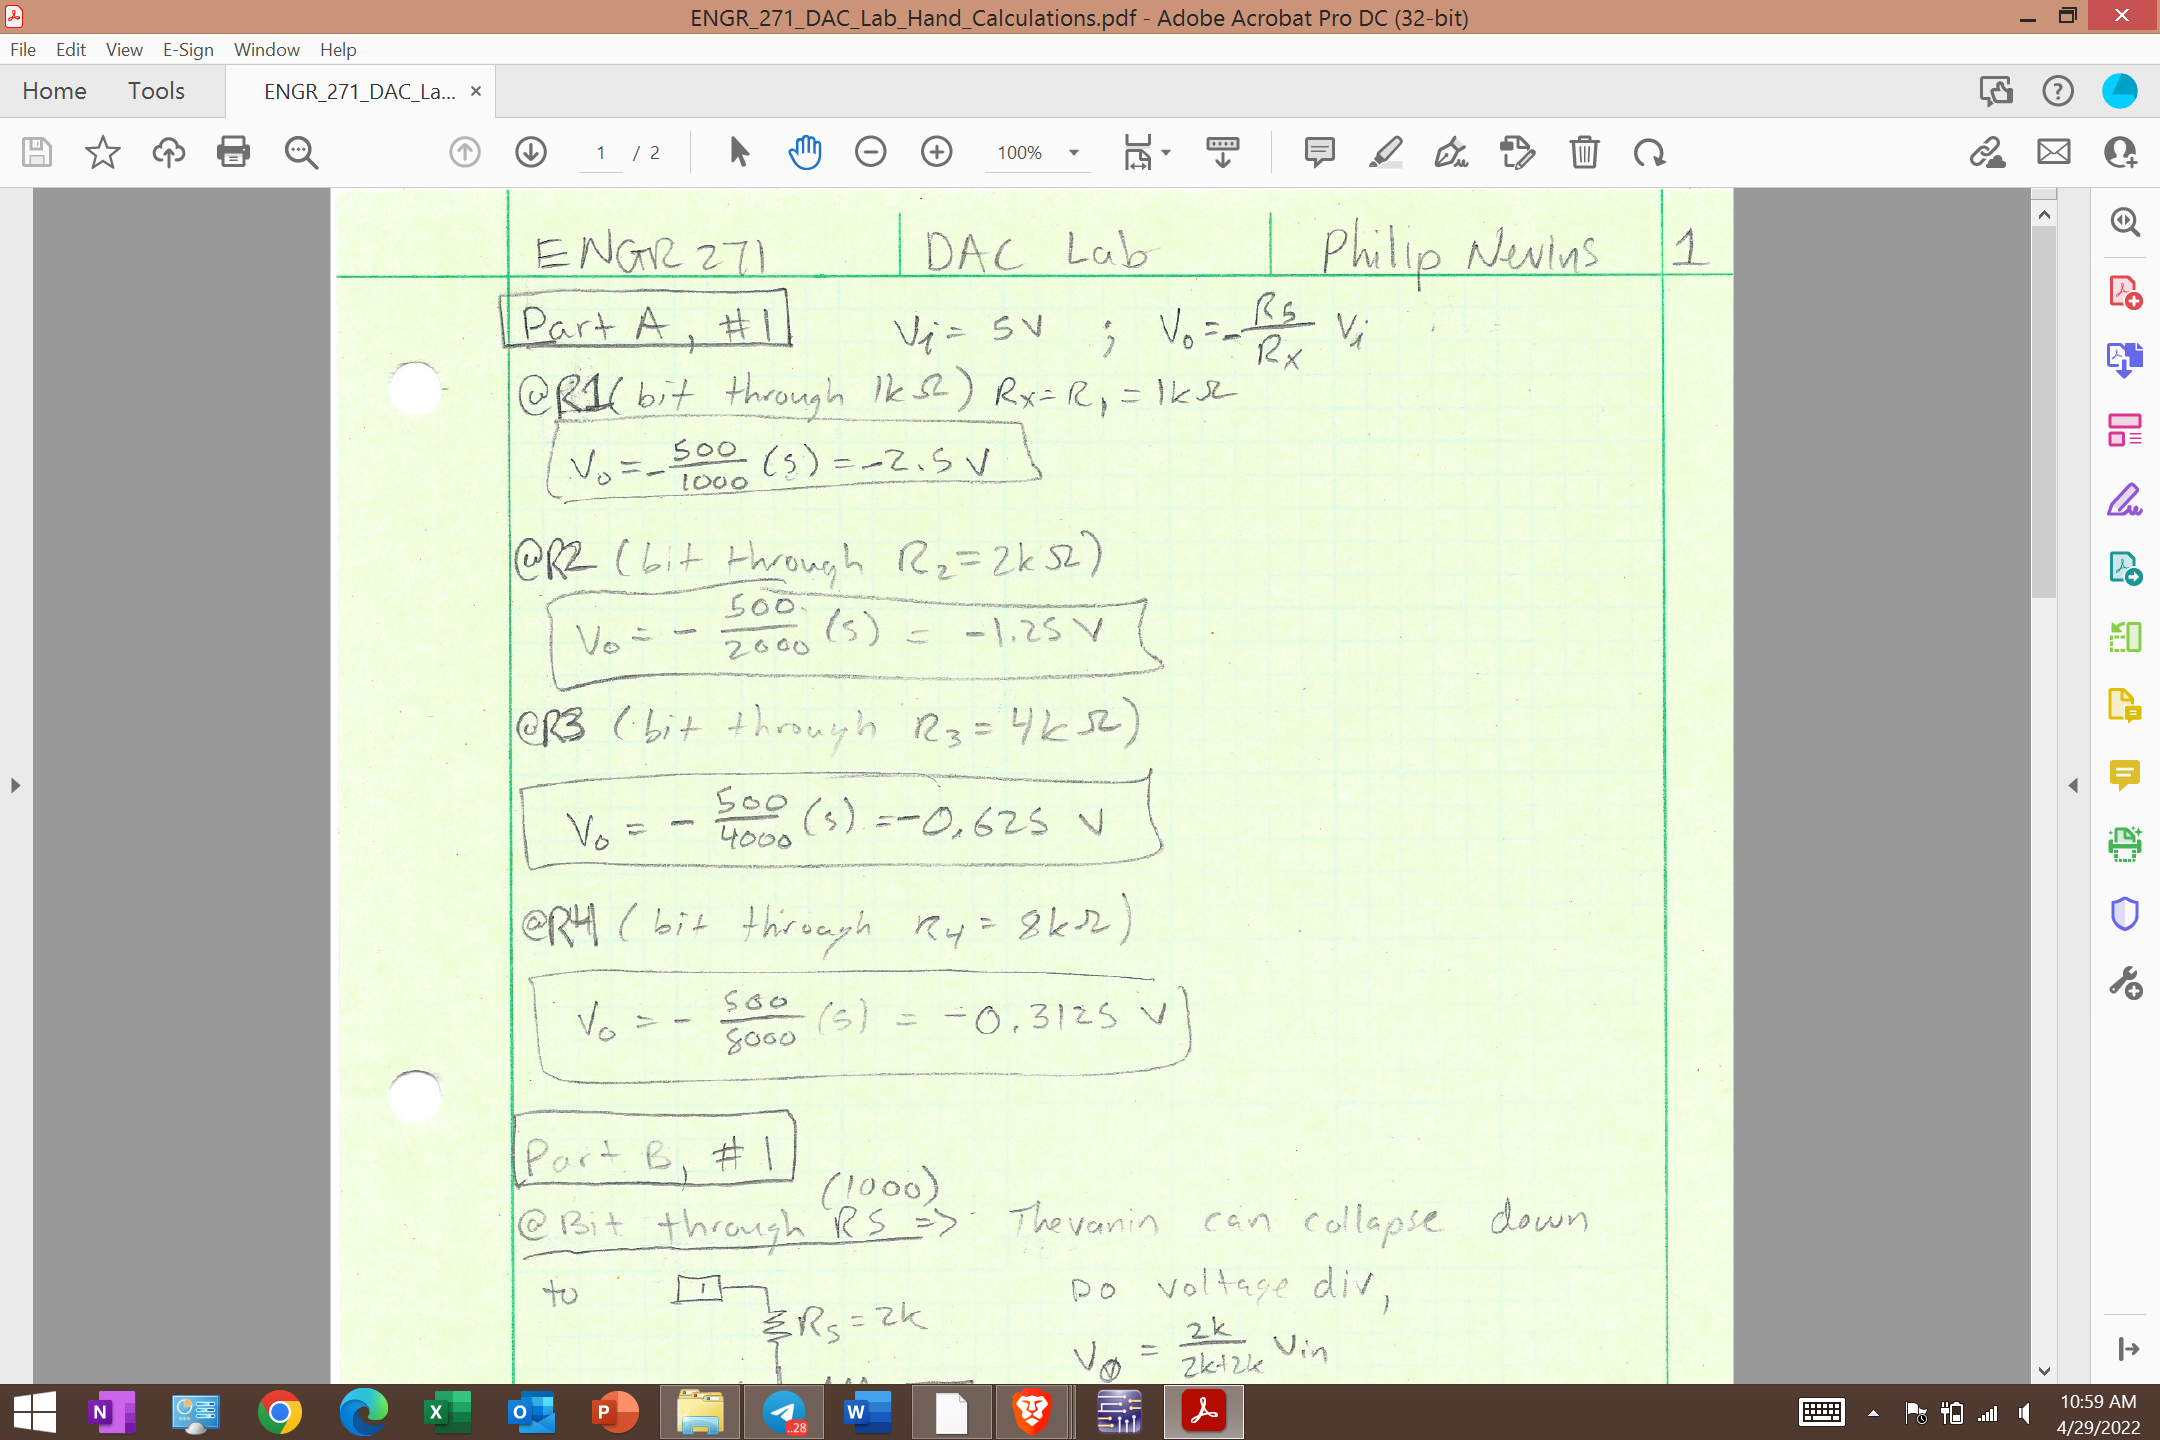 ENGR_271_DAC_Lab_Hand_Calculations.pdf - Adobe Acrobat Pro DC (32-bit)
File Edit View E-Sign Window Help
Home Tools ENGR_271_DAC_La... ×
1 / 2 100%
ENGR 271 DAC Lab Philip Nevins 1
Part A, #1 Vi = 5V ; Vo = - R5/Rx Vi
@R1 (bit through 1kΩ) Rx = R1 = 1kΩ
Vo = - 500/1000 (5) = -2.5 V
@R2 (bit through R2 = 2kΩ)
Vo = - 500/2000 (5) = -1.25 V
@R3 (bit through R3 = 4kΩ)
Vo = - 500/4000 (5) = -0.625 V
@R4 (bit through R4 = 8kΩ)
Vo = - 500/8000 (5) = -0.3125 V
Part B, #1
(1000)
@ Bit through R5 => Thevanin can collapse down
to 1 Do voltage div,
R5 = 2k
Vo = 2k/2k+2k Vin
N X O P W
..28
10:59 AM
4/29/2022